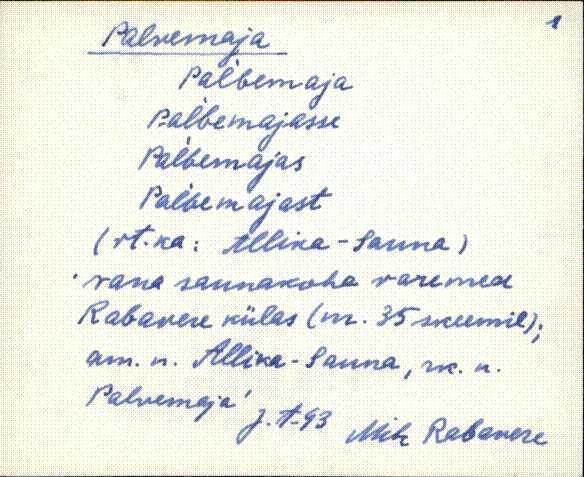 1
Palvemaja
Pal'bemaja
Pal'bemajasse
Pal'bemajas
Pal'bemajast
(vt. ka: Allika-Sauna)
'vana saunakoha varemed
Rabavere külas (nr. 35 skeemil);
am. n. Allika-Sauna, rk. n.
Palvemaja'
J. t-93 MMg Rabavere